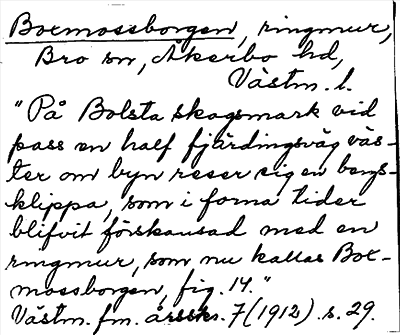 Boemossborgen, ringmur,
Bro sn, Åkerbo hd,
Västm. l.
"På Bolsta skogsmark vid
pass en half fjärdingsväg väs-
ter om byn reser sig en bergs-
klippa, som i forna tider
blifvit förskansad med en
ringmur, som nu kallas Boe-
mossborgen, fig. 14."
Västm. fm. årsskr. 7 (1912) s. 29.